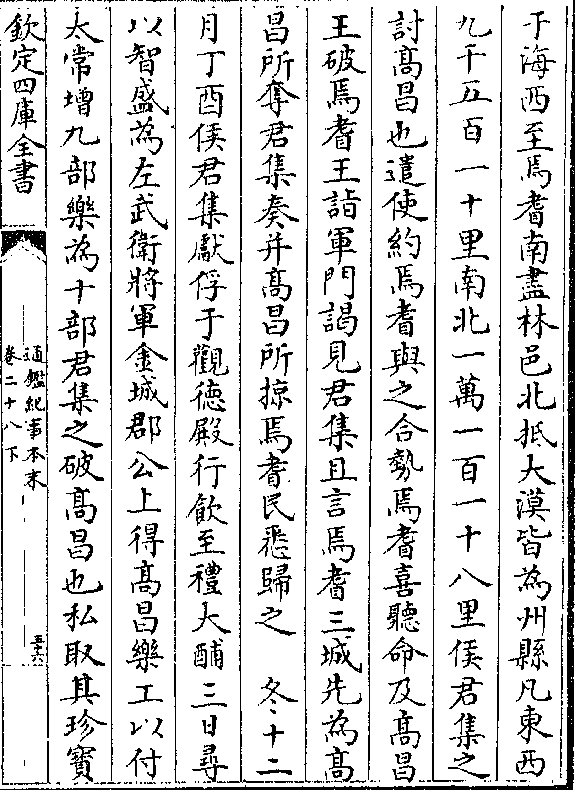 于海西至焉耆南盡林邑北抵大漠皆為州縣凡東西
九千五百一十里南北一萬一百一十八里侯君集之
討髙昌也遣使約焉耆與之合勢焉耆喜聽命及髙昌
王破焉耆王詣軍門謁見君集且言焉耆三城先為髙
昌所奪君集奏并髙昌所掠焉耆民悉歸之　冬十二
月丁酉侯君集獻俘于觀德殿行飲至禮大酺三日尋
以智盛為左武衛將軍金城郡公上得髙昌樂工以付
太常增九部樂為十部君集之破髙昌也私取其珍寳
欽定四庫全書
通鑑紀事本末
卷二十八下
五十六